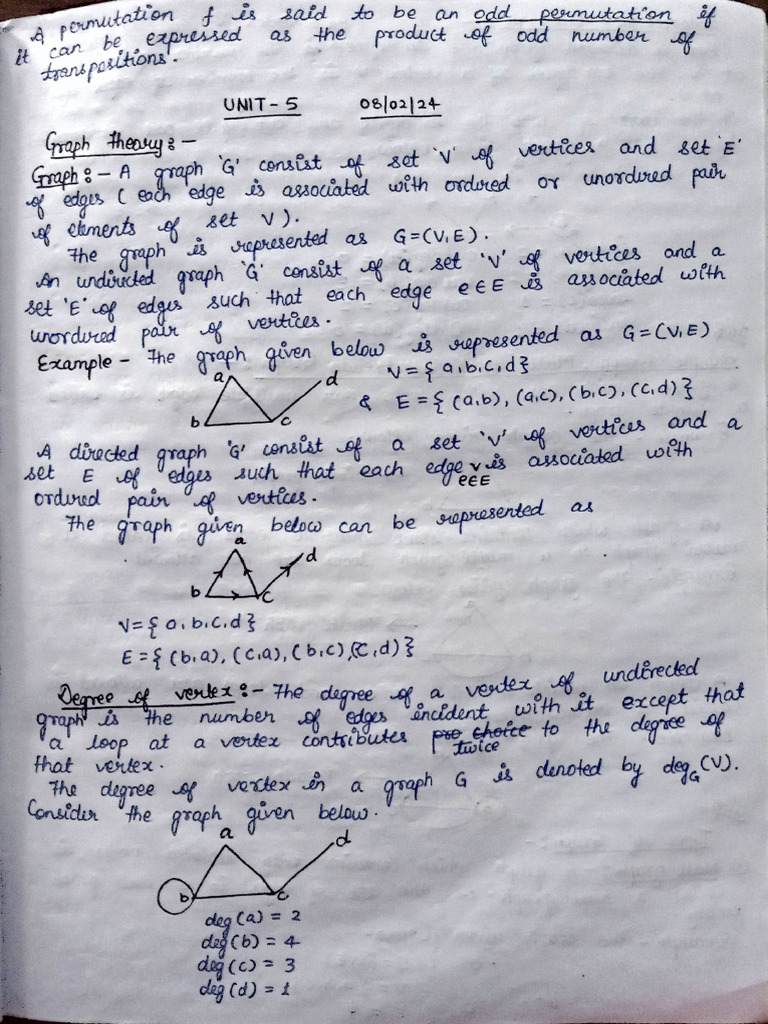 A permutation f is said to be an odd permutation if
it can be expressed as the product of odd number of
transpositions.
UNIT-5 08/02/24
Graph theory:-
Graph:- A graph 'G' consist of set 'V' of vertices and set 'E'
of edges ( each edge is associated with ordered or unordered pair
of elements of set V).
The graph is represented as G=(V,E).
An undirected graph 'G' consist of a set 'V' of vertices and a
set 'E' of edges such that each edge e∈E is associated with
unordered pair of vertices.
Example - The graph given below is represented as G=(V,E)
a d V={a,b,c,d}
b c & E={(a,b), (a,c), (b,c), (c,d)}
A directed graph 'G' consist of a set 'V' of vertices and a
set E of edges such that each edge is associated with
e∈E
ordered pair of vertices.
The graph given below can be represented as
a d
b c
V={a,b,c,d}
E={(b,a), (c,a), (b,c), (c,d)}
Degree of vertex:- The degree of a vertex of undirected
graph is the number of edges incident with it except that
a loop at a vertex contributes pro choice to the degree of
twice
that vertex.
The degree of vertex in a graph G is denoted by deg_G(V).
Consider the graph given below.
a d
b c
deg(a) = 2
deg(b) = 4
deg(c) = 3
deg(d) = 1